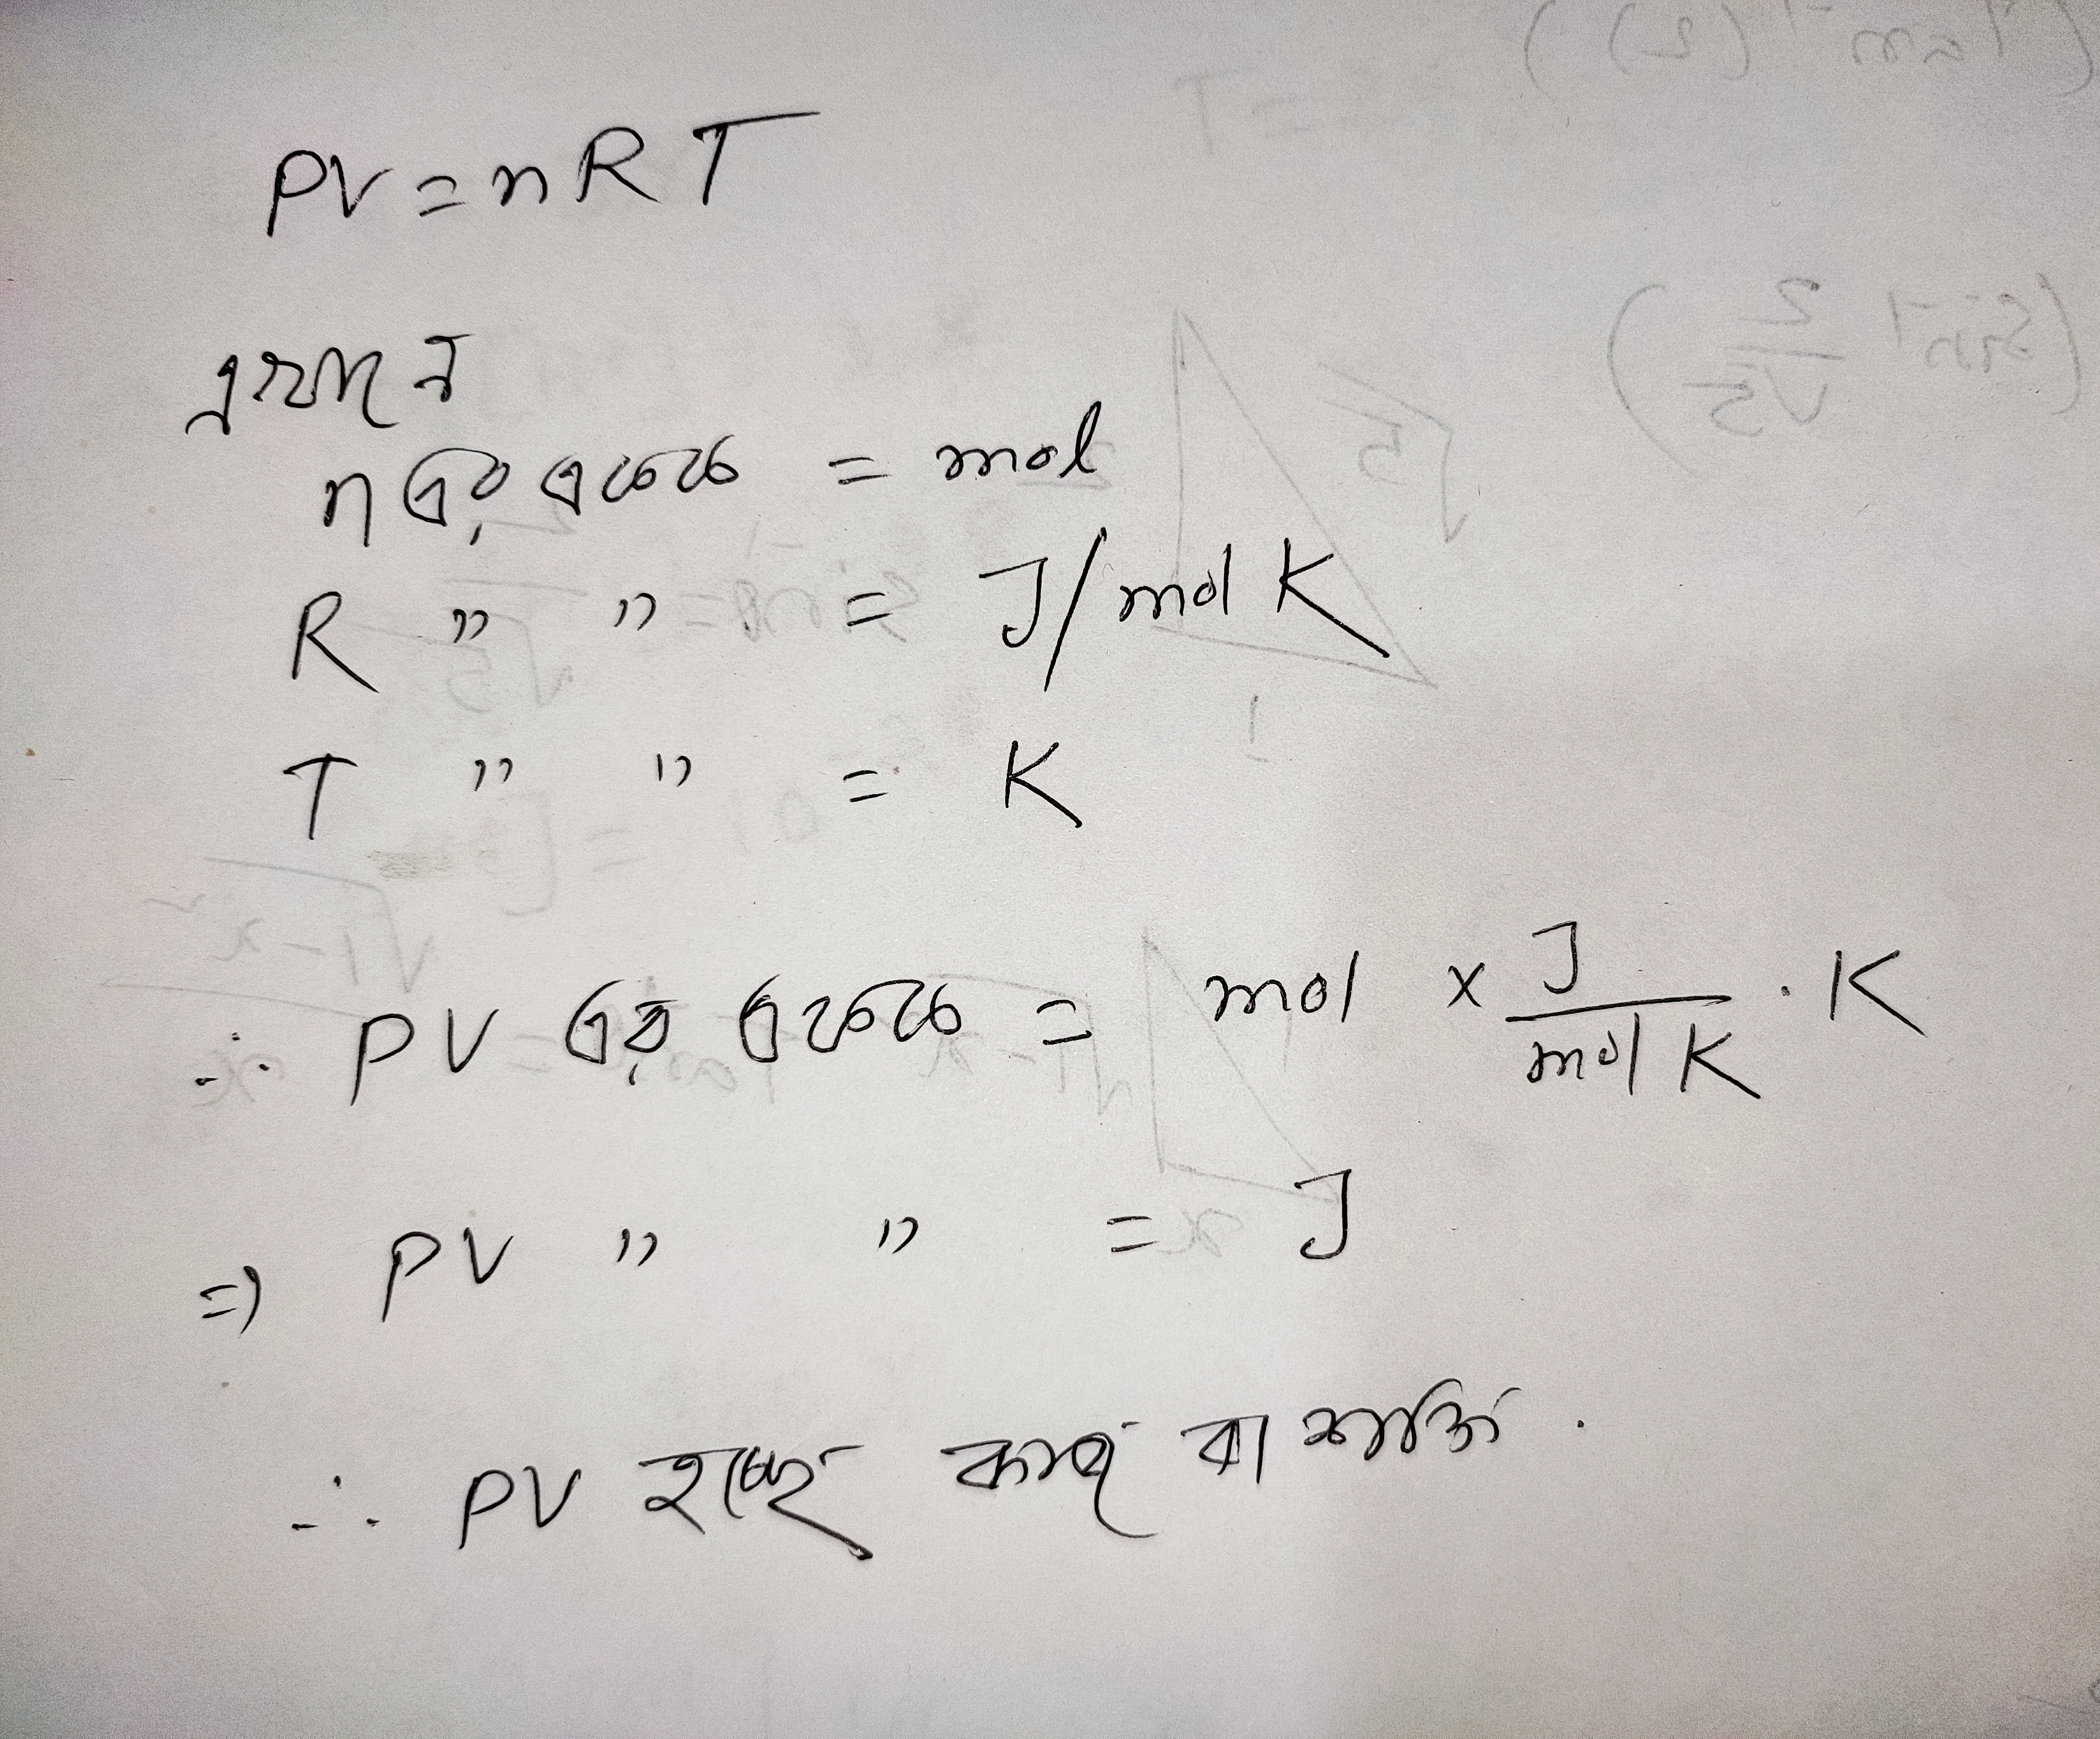 PV = nRT
এখানে
n এর একক = mol
R " " = J/mol K
T " " = K
∴ PV এর একক = mol × J/mol K . K
⇒ PV " " = J
∴ PV হচ্ছে কাজ বা শক্তি .